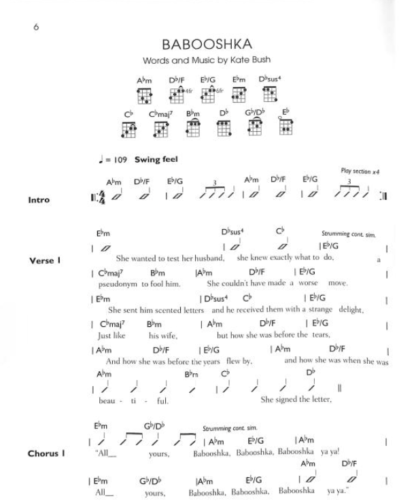 6
BABOOSHKA
Words and Music by Kate Bush
A♭m D♭/F E♭/G E♭m D♭sus⁴
C♭ C♭maj⁷ B♭m D♭ G♭/D♭ E♭
♩ = 109 Swing feel
Play section x4
A♭m D♭/F E♭/G 3 A♭m D♭/F E♭/G 3
Intro
E♭m D♭sus⁴ C♭ Strumming cont. sim.
| E♭/G
Verse 1 She wanted to test her husband, she knew exactly what to do, a
| C♭maj⁷ B♭m | A♭m D♭/F | E♭/G |
pseudonym to fool him. She couldn't have made a worse move.
| E♭m | D♭sus⁴ C♭ | E♭/G |
She sent him scented letters and he received them with a strange delight,
| C♭maj⁷ B♭m | A♭m D♭/F | E♭/G |
Just like his wife, but how she was before the tears,
| A♭m D♭/F | E♭/G | A♭m D♭/F |
And how she was before the years flew by, and how she was when she was
A♭m B♭m C♭ D♭
beau - ti - ful. She signed the letter,
E♭m G♭/D♭ Strumming cont. sim.
| A♭m E♭/G | A♭m |
Chorus 1 "All__ yours, Babooshka, Babooshka, Babooshka ya ya!
A♭m D♭/F
| E♭m G♭/D♭ | A♭m E♭/G |
All__ yours, Babooshka, Babooshka, Babooshka ya ya."